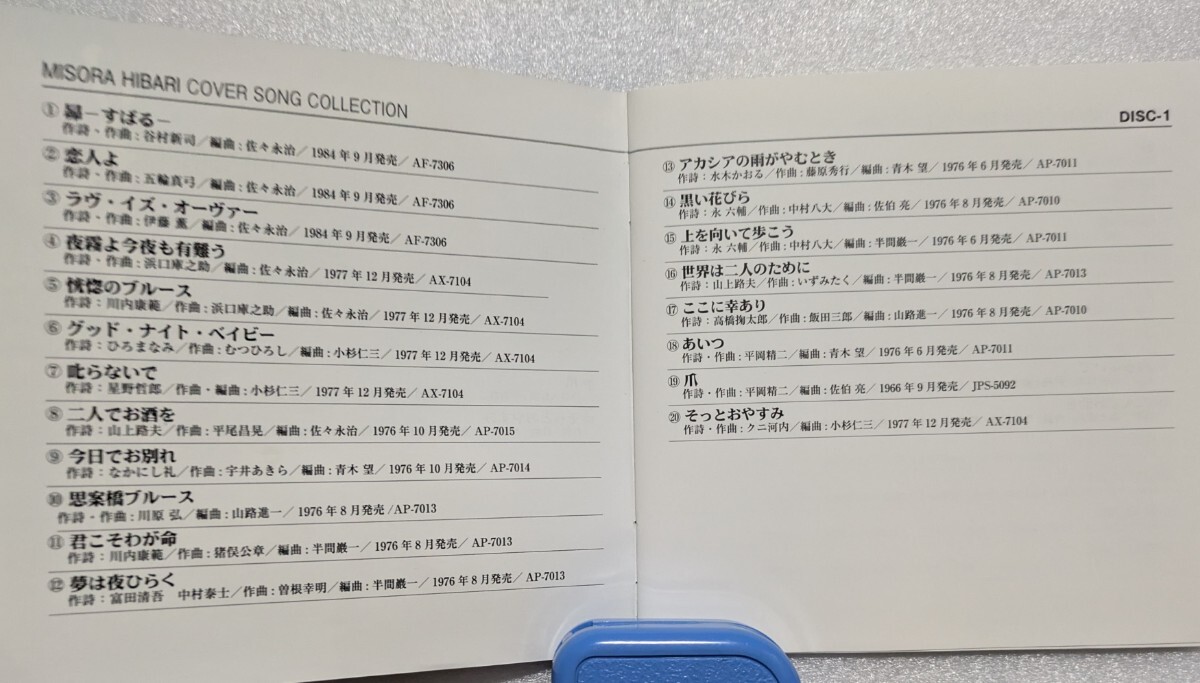 MISORA HIBARI COVER SONG COLLECTION
① 昴－すばる－
作詩・作曲：谷村新司／編曲：佐々永治／1984年9月発売／AF-7306
② 恋人よ
作詩・作曲：五輪真弓／編曲：佐々永治／1984年9月発売／AF-7306
③ ラヴ・イズ・オーヴァー
作詩・作曲：伊藤 薫／編曲：佐々永治／1984年9月発売／AF-7306
④ 夜霧よ今夜も有難う
作詩・作曲：浜口庫之助／編曲：佐々永治／1977年12月発売／AX-7104
⑤ 恍惚のブルース
作詩：川内康範／作曲：浜口庫之助／編曲：佐々永治／1977年12月発売／AX-7104
⑥ グッド・ナイト・ベイビー
作詩：ひろまなみ／作曲：むつひろし／編曲：小杉仁三／1977年12月発売／AX-7104
⑦ 叱らないで
作詩：星野哲郎／作曲・編曲：小杉仁三／1977年12月発売／AX-7104
⑧ 二人でお酒を
作詩：山上路夫／作曲：平尾昌晃／編曲：佐々永治／1976年10月発売／AP-7015
⑨ 今日でお別れ
作詩：なかにし礼／作曲：宇井あきら／編曲：青木 望／1976年10月発売／AP-7014
⑩ 思案橋ブルース
作詩・作曲：川原 弘／編曲：山路進一／1976年8月発売/AP-7013
⑪ 君こそわが命
作詩：川内康範／作曲：猪俣公章／編曲：半間巖一／1976年8月発売／AP-7013
⑫ 夢は夜ひらく
作詩：富田清吾　中村泰士／作曲：曽根幸明／編曲：半間巖一／1976年8月発売／AP-7013
DISC-1
⑬ アカシアの雨がやむとき
作詩：水木かおる／作曲：藤原秀行／編曲：青木 望／1976年6月発売／AP-7011
⑭ 黒い花びら
作詩：永 六輔／作曲：中村八大／編曲：佐伯 亮／1976年8月発売／AP-7010
⑮ 上を向いて歩こう
作詩：永 六輔／作曲：中村八大／編曲：半間巖一／1976年6月発売／AP-7011
⑯ 世界は二人のために
作詩：山上路夫／作曲：いずみたく／編曲：半間巖一／1976年8月発売／AP-7013
⑰ ここに幸あり
作詩：高橋掬太郎／作曲：飯田三郎／編曲：山路進一／1976年8月発売／AP-7010
⑱ あいつ
作詩・作曲：平岡精二／編曲：青木 望／1976年6月発売／AP-7011
⑲ 爪
作詩・作曲：平岡精二／編曲：佐伯 亮／1966年9月発売／JPS-5092
⑳ そっとおやすみ
作詩・作曲：クニ河内／編曲：小杉仁三／1977年12月発売／AX-7104